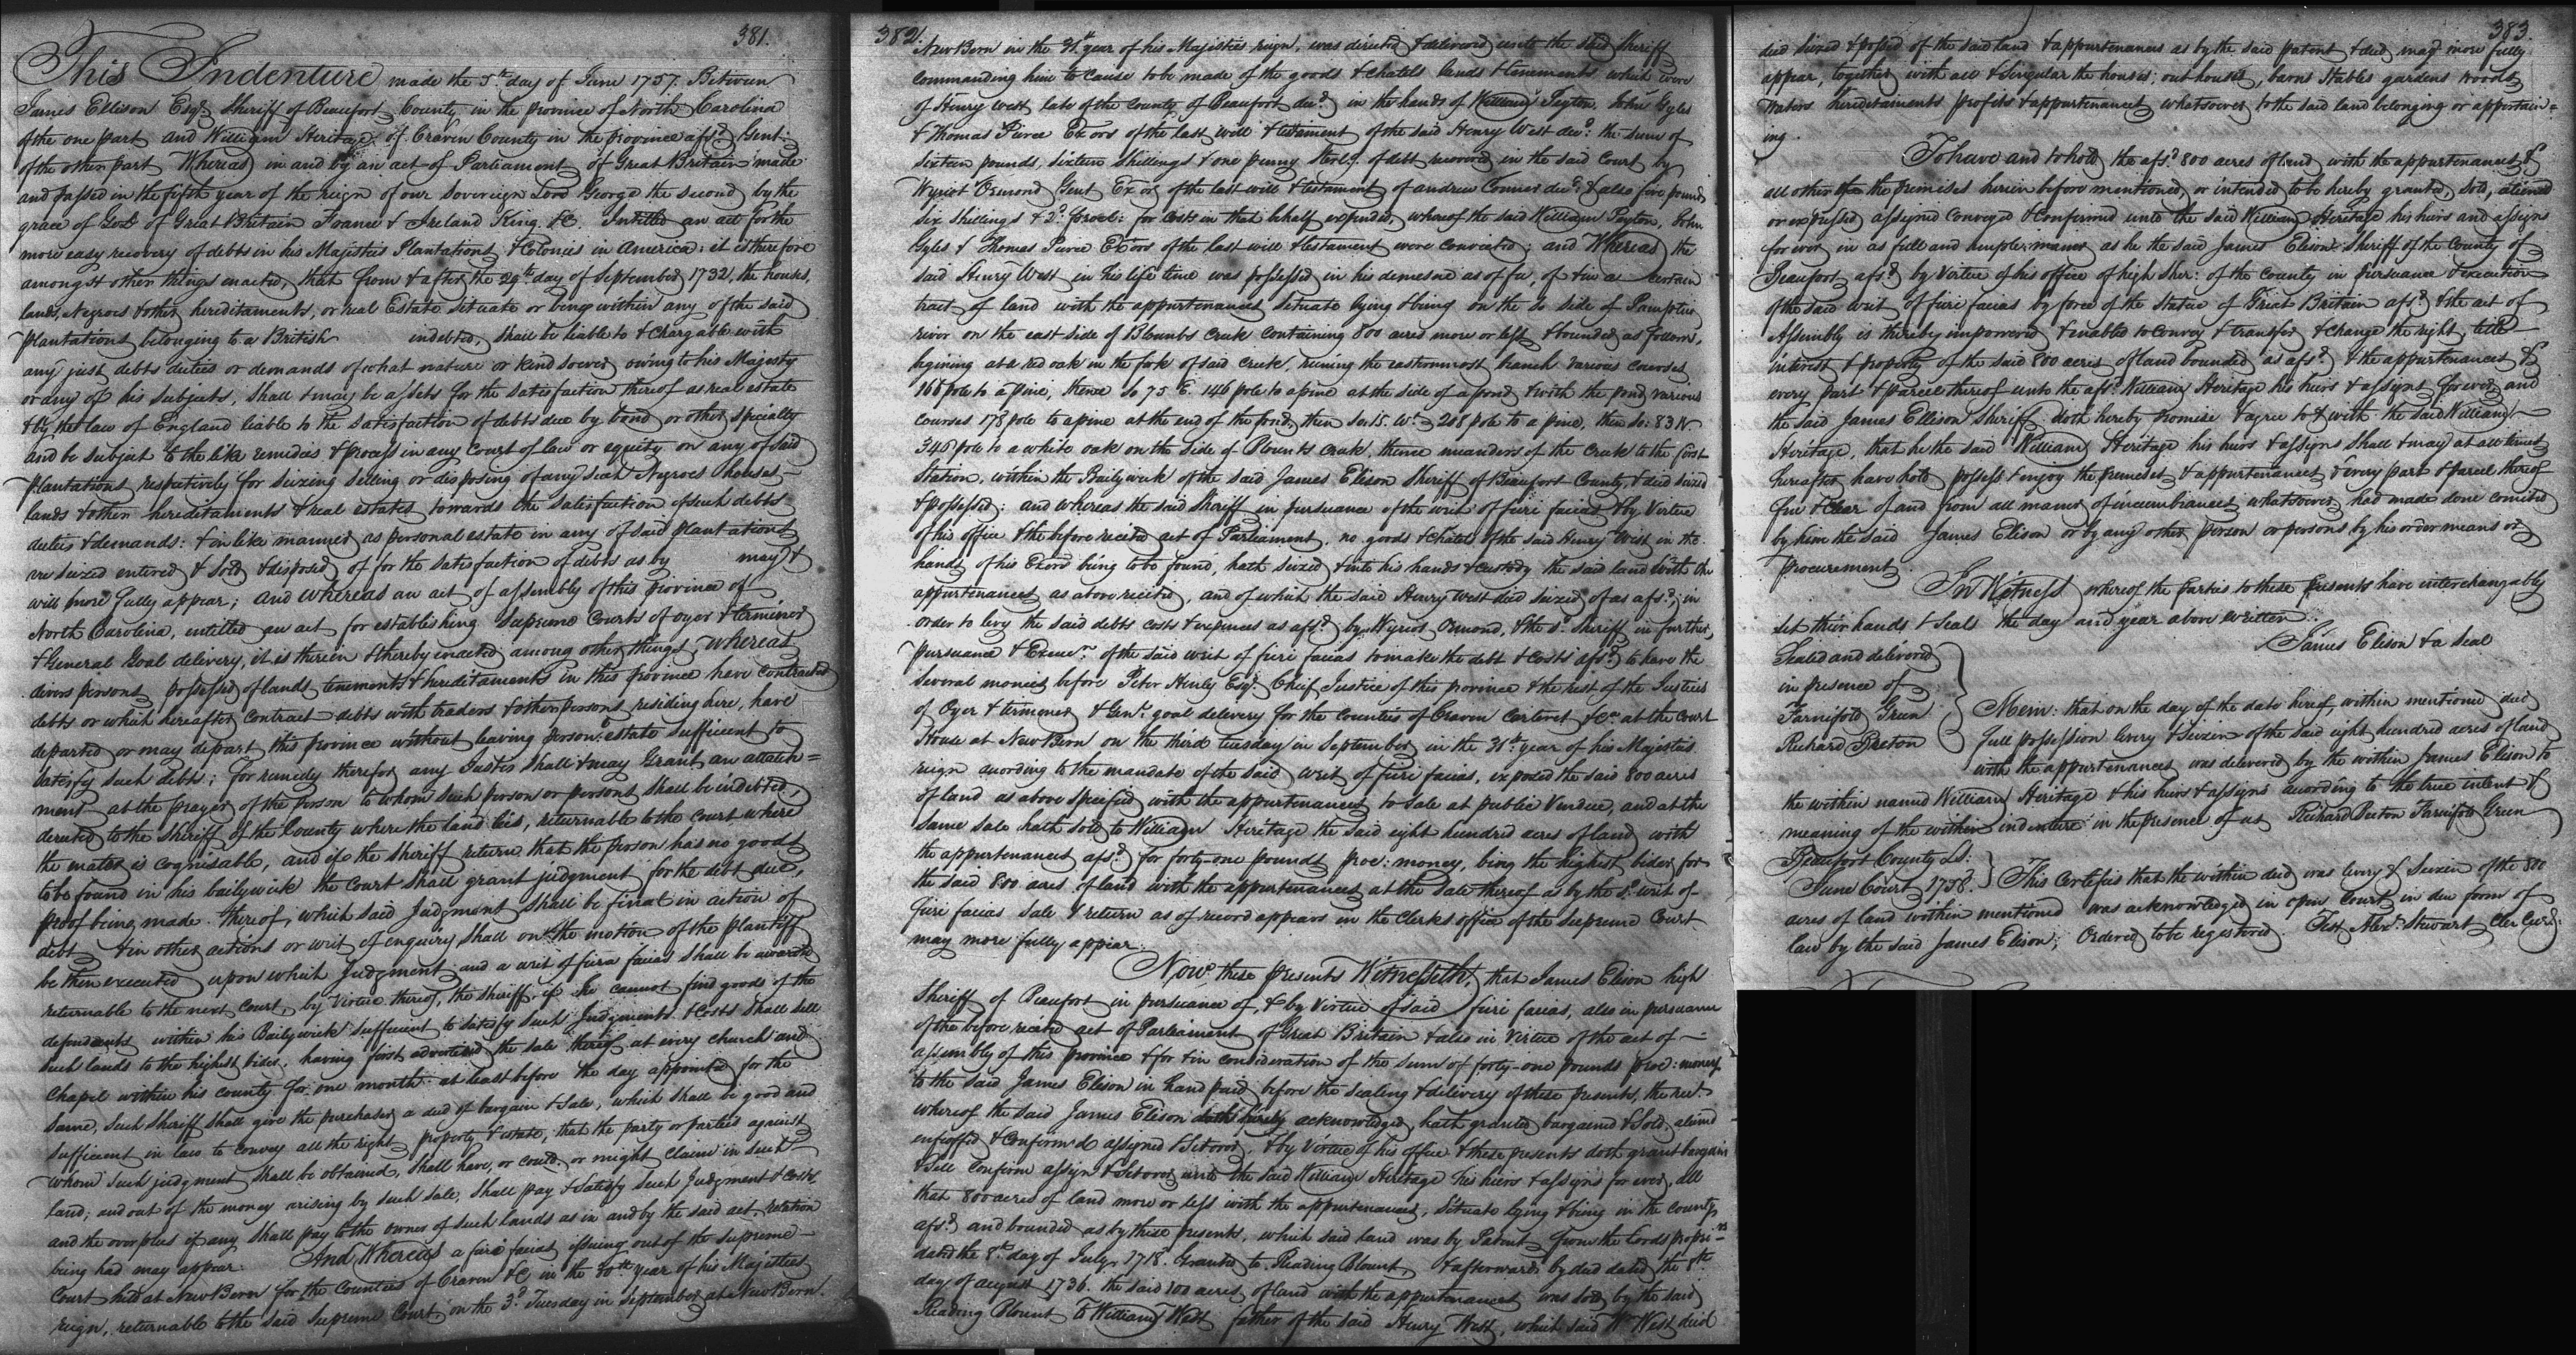 381.
This Indenture made the 5th day of June 1757. Between
James Ellison Esqr. Sheriff of Beaufort County in the province of North Carolina
of the one part and William Heritage of Craven County in the province afsd. Gent:
of the other part Whereas in and by an act of Parliament of Great Britain made
and passed in the fifth year of the reign of our sovereign Lord George the second by the
grace of God of Great Britain France & Ireland King &C. Intitled an act for the
more easy recovery of debts in his Majesties Plantations & Colonies in America: it is therefore
amongst other things enacted, that from & after the 29th day of September 1732, the houses,
lands, Negroes & other hereditaments, or real Estate situate or being within any of the said
plantations belonging to a British indebted, shall be liable to & chargable with
any just debts duties or demands of what nature or kind soever owing to his Majesty
or any of his subjects, shall & may be assets for the satisfaction thereof as real estate
& by the law of England liable to the satisfaction of debts due by bond or other specialty
and be subject to the like remidies & process in any Court of law or equity on any of said
plantations respectively for seizing selling or disposing of any such Negroes houses
lands & other hereditaments & real estates towards the satisfaction of such debts
duties & demands: & in like manner as personal estate in any of said plantations
are seized entered & sold & disposed of for the satisfaction of debts as by may &
will more fully appear; and whereas an act of assembly of this province of
North Carolina, entitled an act for establishing Supreme Courts of oyer & terminer
& General Goal delivery, it is therein & thereby enacted among other things, whereas
divers persons possessed of lands tenements & hereditaments in this province have contracted
debts or which hereafter contract debts with traders & other persons residing here, have
departed or may depart this province without leaving person: estate sufficient to
satisfy such debts; for remedy therefor any Justis shall & may Grant an attatch=
ment at the prayer of the person to whom such person or persons shall be indebted,
derected to the Sheriff of the County where the land lies, returnable to the court where
the mater is cognisable, and if the Sheriff return that the person has no goods
to be found in his bailywick the court shall grant judgment for the debt due,
proof being made thereof, which said Judgment shall be final in action of
debt & in other actions or writ of enquiry shall on the motion of the plantiff
be then executed upon which Judgment and a writ of fiera facias shall be awarded
returnable to the next Court, by Virtue thereof, the sheriff, if he cannot find goods of the
defendants within his Bailywick sufficient to satisfy such Judgments & Costs shall sell
such lands to the highest bider, having first advertised the sale thereof at every church and
Chapel within his county for one month at least before the day appointed for the
same, such Sheriff shall give the purchaser a deed of bargain & Sale, which shall be good and
sufficient in law to convey all the right property & estate, that the party or parties against
whom such judgment shall be obtained, shall have, or could or might claim in such
land; and out of the money arising by such sale, shall pay & satisfy such Judgment & Costs
and the overplus if any shall pay to the owner of such lands as in and by the said act, relation
being had may appear. And Whereas a fiere facias issuing out of the supreme
Court held at New Bern for the Counties of Craven &C in the 30th year of his Majesties
reign, returnable to the said Supreme Court on the 3d. Tuesday in September at New Bern.
382.
New Bern in the 31st year of his Majesties reign, was directed & delivered unto the said Sheriff
commanding him to cause to be made of the goods & chatels lands & tenements which were
of Henry West late of the county of Beaufort decd. in the hands of William Peyton, John Gyles
& Thomas Pierce Exors of the last will & testament of the said Henry West decd: the sum of
sixteen pounds, sixteen shillings & one penny Sterlg. of debt recovered in the said Court by
Wyriot Ormond Gent Exor of the last will & testament of andrew Conner decd: & also five pounds
six shillings & 2d. procl: for costs in that behalf expended, whereof the said William Peyton, John
Gyles & Thomas Pierce Exors of the last will & testament were convicted; and Whereas the
said Henry West in his life time was possessed in his demesne as of fee, of & in a certain
tract of land with the appurtenances situate lying & being on the So side of Pamptico
river on the east side of Blounts Creek containing 800 acres more or less & bounded as follows,
begining at a red oak in the fork of said creek, runing the easternmost branch various courses
168 pole to a pine, thence So 75 E. 146 pole to a pine at the side of a pond & with the pond various
courses 178 pole to a pine at the end of the pond, then So. 15. Wt. 208 pole to a pine, then So: 83 W
346 pole to a white oak on the side of Blounts creek, thence meanders of the creek to the first
station, within the Bailywick of the said James Elison Sheriff of Beaufort County, & died seized
& possessed; and whereas the said Sheriff in pursuance of the writ of fieri facias & by Virtue
of his office & the before recited act of Parliament, no goods & chatels of the said Henry West in the
hands of his Exors being to be found, hath seized & into his hands & custody the said land with the
appurtenances as above recited, and of which the said Henry West died seized of as afsd; in
order to levy the said debts costs & expences as afsd. by Wyriot Ormond, & the sd. sheriff in further
pursuance & Execun. of the said writ of fieri facias to make the debt & costs afsd. to have the
several monies before Peter Henly Esqr. Chief Justice of this province & the rest of the Justices
of Oyer & terminer & Genl. goal delivery for the counties of Craven Carteret &Ca. at the Court
House at New Bern on the third tuesday in September in the 31st year of his Majesties
reign acording to the mandate of the said writ of fieri facias, exposed the said 800 acres
of land as above specified with the appurtenances to sale at public Vendue, and at the
same sale hath sold to William Heritage the said eight hundred acres of land with
the appurtenances afsd. for forty-one pounds proc: money, being the highest bider for
the said 800 acres of land with the appurtenances at the sale thereof as by the sd. writ of
fieri facias sale & return as of record appears in the Clerks office of the supreme Court
may more fully appear.
Now these presents Witnesseth, that James Elison high
Sheriff of Beaufort in pursuance of, & by Virtue of said fieri facias, also in pursuance
of the before recited act of Parliament of Great Britain & also in Virtue of the act of
assembly of this province & for & in consideration of the sum of forty-one pounds proc: money
to the said James Elison in hand paid before the sealing & delivery of these presents, the rect.
whereof the said James Elison doth hereby acknowledge, hath granted bargained & Sold, aliend
enfeoffed & Confirm'd assigned & Set over, & by Virtue of his office & these presents doth grant bargain
& Sell Confirm assign & Set over unto the said William Heritage his heirs & assigns for ever, all
that 800 acres of land more or less with the appurtenances, situate lying & being in the county
afsd. and bounded as by these presents, which said land was by Patent from the Lords propri-rs
dated the 8th day of July 1718. Granted to Reading Blount & afterwards by deed dated the 8th
day of august 1736. the said 800 acres of land with the appurtenances was sold by the said
Reading Blount to William West father of the said Henry West, which said Wm West died
383.
died seized & possd of the said land & appurtenances as by the said patent & deed may more fully
appear, together with all & singular the houses, out houses, barns Stables gardens woods
waters hereditaments profits & appurtenances whatsoever to the said land belonging or appertain=
ing.
To have and to hold the afsd. 800 acres of land with the appurtenances &
all other the premises herein before mentioned, or intended to be hereby granted, sold, aliened
or expressed, assigned conveyed & Confirmed unto the said William Heritage his heirs and assigns
for ever in as full and ample maner as he the said James Elison Sheriff of the County of
Beaufort afsd. by Virtue of his office of high Sher: of the county in pursuance & execution
of the said writ of fieri facias by force of the Statue of Great Britain afsd. & the act of
Assembly is thereby impowered & enabled to Convey & transfer & change the right, title
interest & property of the said 800 acres of land bounded as afsd. & the appurtenances &
every part & parcel thereof unto the afsd. William Heritage his heirs & assigns forever, and
the said James Ellison Sheriff doth hereby promise & agree to & with the said William
Heritage, that he the said William Heritage his heirs & assigns shall & may at all times
hereafter have hold possess & enjoy the premises & appurtenances & every part & parcel thereof
free & Clear of and from all maner of incumbrances whatsoever had made done comited
by him the said James Elison or by any other person or persons by his order means or
procurement.
In Witness whereof the Parties to these presents have interchangably
set their hands & Seals the day and year above written.
James Elison & a Seal
Sealed and delivered
in presence of
Farnifold Green
Richard Preton
Mem: that on the day of the date hereof, within mentioned deed
full possession livery & seizen of the said eight hundred acres of land
with the appurtenances was delivered by the within James Elison to
the within named William Heritage & his heirs & assigns acording to the true intent &
meaning of the within indenture in the presence of us Richard Preton Farnifold Green
Beaufort County Ss:
June Court 1758. This Certifies that the within deed was livery & Seizen of the 800
acres of land within mentioned was acknowledged in open Court in due form of
law by the said James Elison, Ordered to be registered. Test Alexr. Stewart Cler Cur: